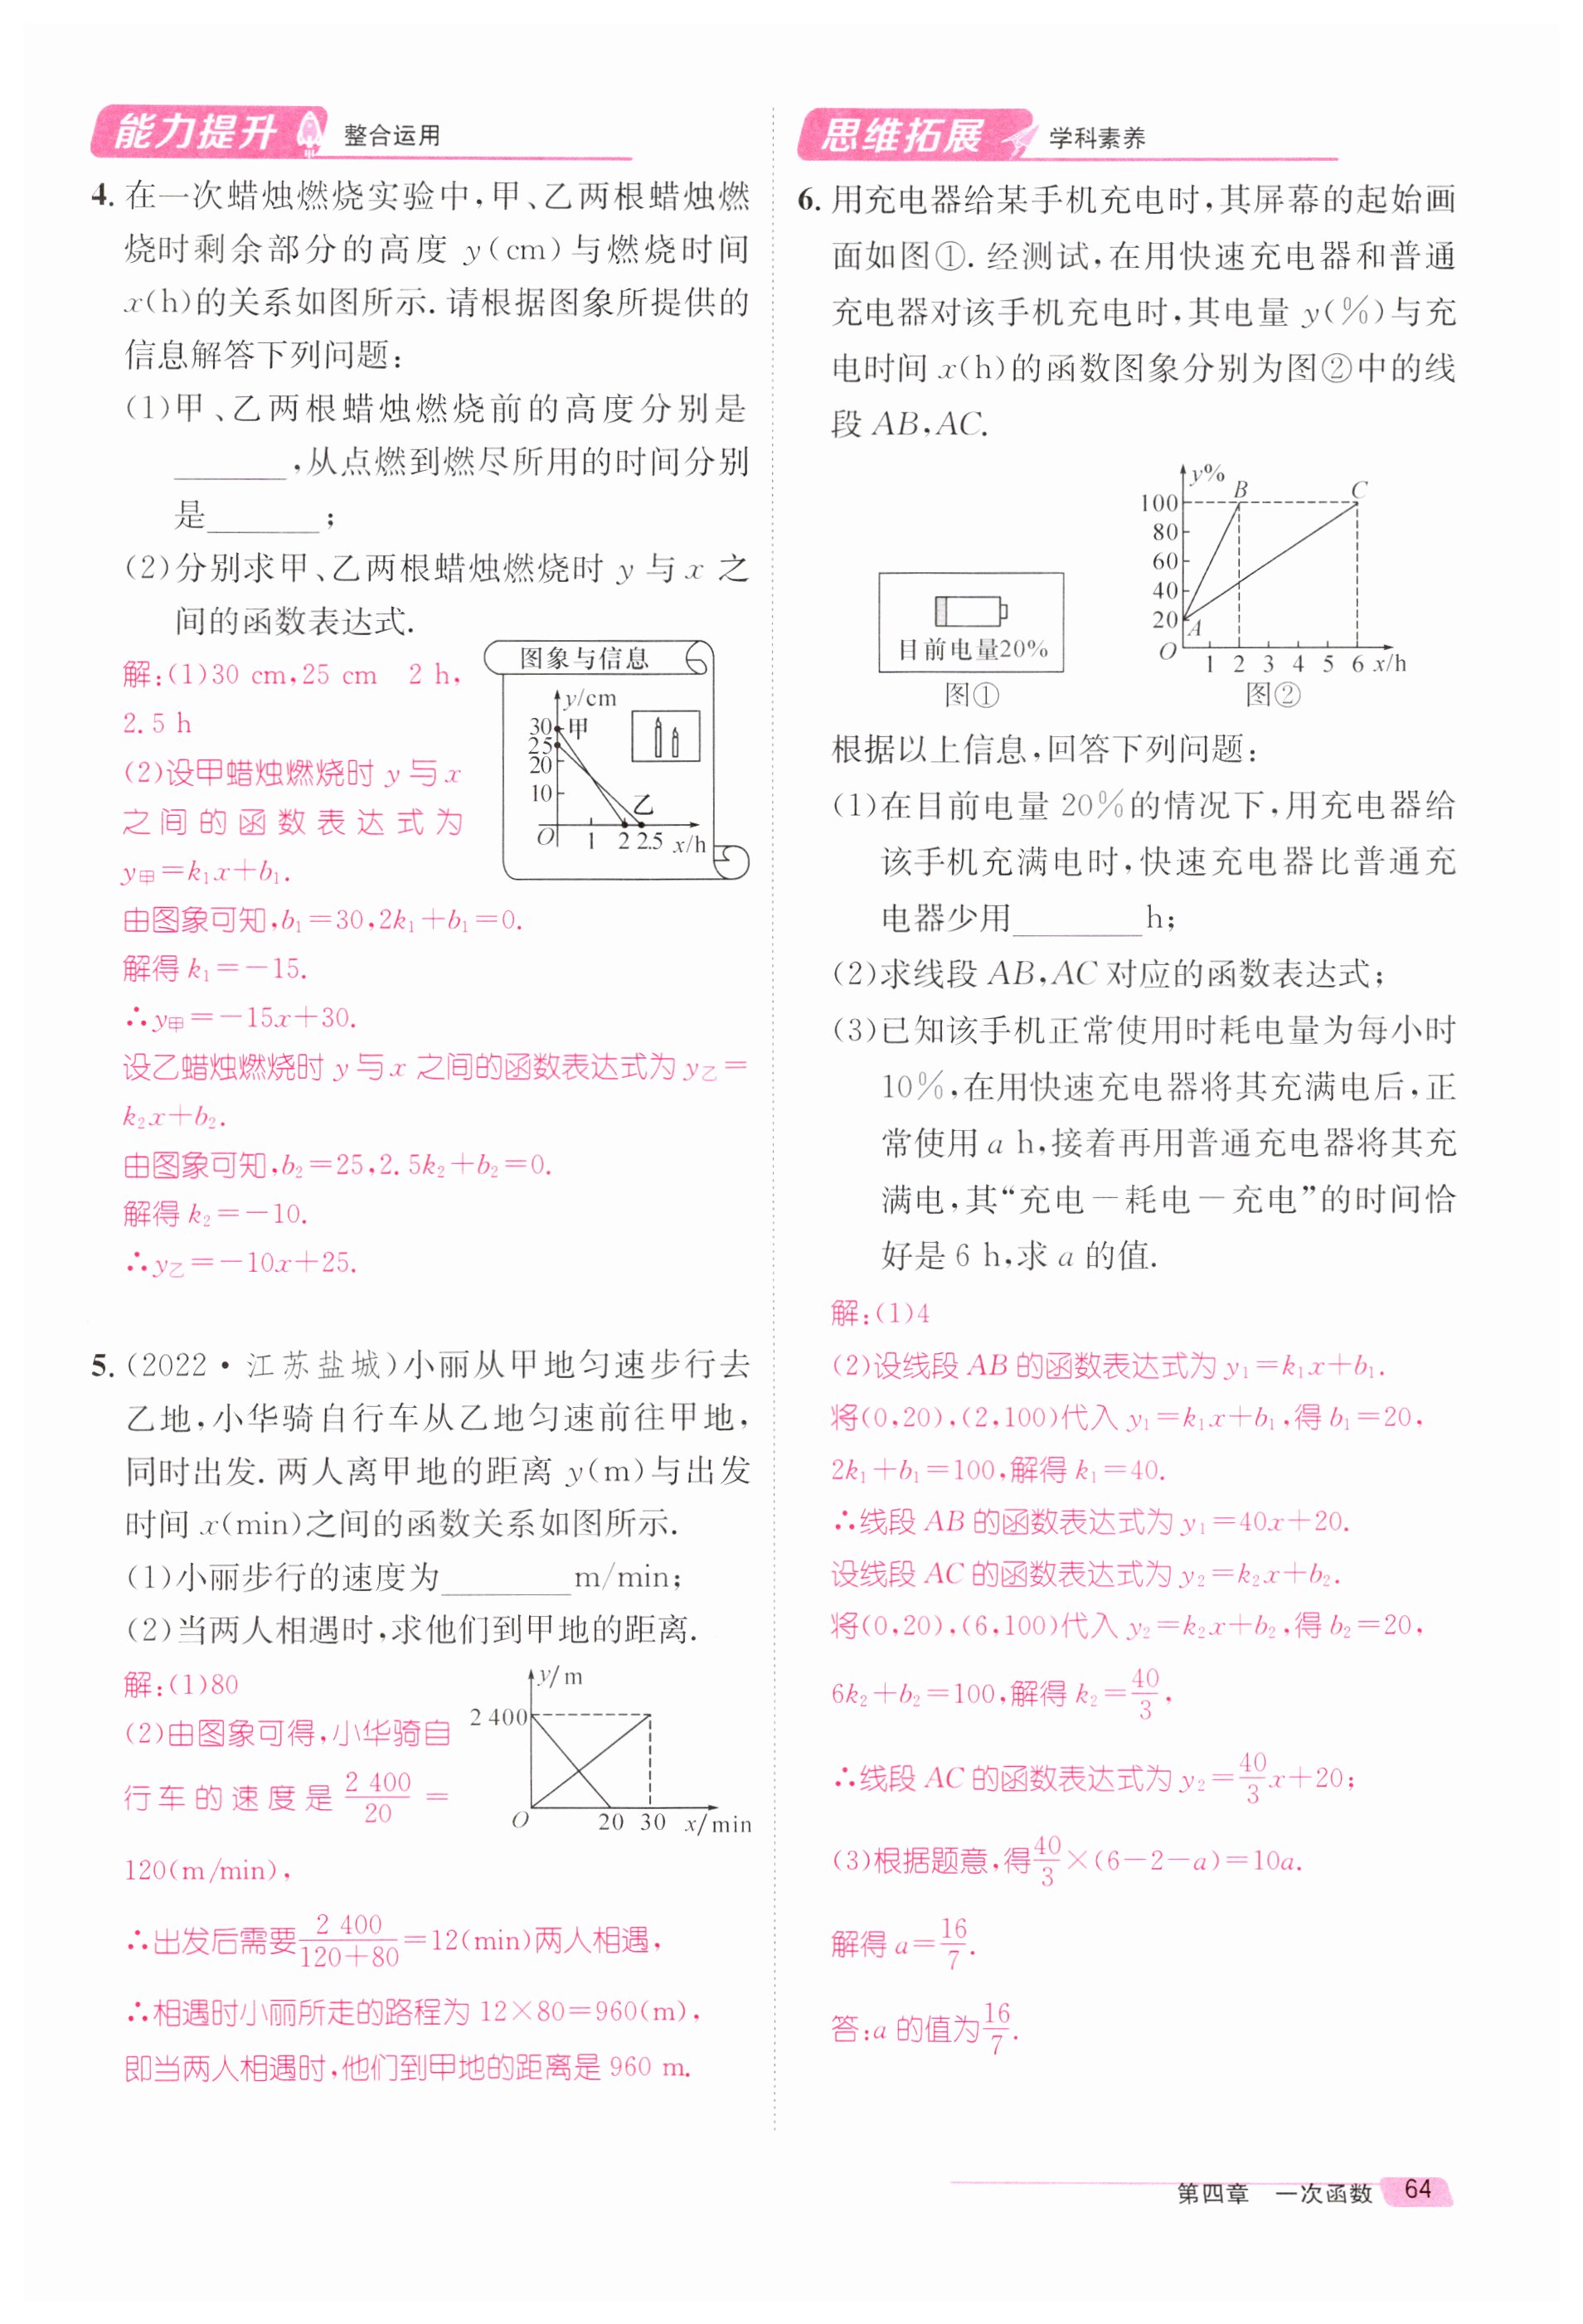 能力提升 整合运用
4. 在一次蜡烛燃烧实验中,甲、乙两根蜡烛燃
烧时剩余部分的高度 y(cm)与燃烧时间
x(h)的关系如图所示. 请根据图象所提供的
信息解答下列问题:
(1)甲、乙两根蜡烛燃烧前的高度分别是
________,从点燃到燃尽所用的时间分别
是________;
(2)分别求甲、乙两根蜡烛燃烧时 y 与 x 之
间的函数表达式.
图象与信息
y/cm
30 甲
25
20
10
乙
O 1 2 2.5 x/h
解:(1)30 cm,25 cm 2 h,
2.5 h
(2)设甲蜡烛燃烧时 y 与 x
之间的函数表达式为
y甲=k₁x+b₁.
由图象可知,b₁=30,2k₁+b₁=0.
解得 k₁=-15.
∴y甲=-15x+30.
设乙蜡烛燃烧时 y 与 x 之间的函数表达式为 y乙=
k₂x+b₂.
由图象可知,b₂=25,2.5k₂+b₂=0.
解得 k₂=-10.
∴y乙=-10x+25.
5. (2022·江苏盐城)小丽从甲地匀速步行去
乙地,小华骑自行车从乙地匀速前往甲地,
同时出发. 两人离甲地的距离 y(m)与出发
时间 x(min)之间的函数关系如图所示.
(1)小丽步行的速度为________m/min;
(2)当两人相遇时,求他们到甲地的距离.
y/m
2 400
O 20 30 x/min
解:(1)80
(2)由图象可得,小华骑自
行车的速度是 2 400/20 =
120(m/min),
∴出发后需要 2 400/(120+80)=12(min)两人相遇,
∴相遇时小丽所走的路程为 12×80=960(m),
即当两人相遇时,他们到甲地的距离是 960 m.
思维拓展 学科素养
6. 用充电器给某手机充电时,其屏幕的起始画
面如图①. 经测试,在用快速充电器和普通
充电器对该手机充电时,其电量 y(%)与充
电时间 x(h)的函数图象分别为图②中的线
段 AB,AC.
目前电量20%
图①
y%
B C
100
80
60
40
20
A
O 1 2 3 4 5 6 x/h
图②
根据以上信息,回答下列问题:
(1)在目前电量 20%的情况下,用充电器给
该手机充满电时,快速充电器比普通充
电器少用________h;
(2)求线段 AB,AC 对应的函数表达式;
(3)已知该手机正常使用时耗电量为每小时
10%,在用快速充电器将其充满电后,正
常使用 a h,接着再用普通充电器将其充
满电,其“充电-耗电-充电”的时间恰
好是 6 h,求 a 的值.
解:(1)4
(2)设线段 AB 的函数表达式为 y₁=k₁x+b₁.
将(0,20),(2,100)代入 y₁=k₁x+b₁,得 b₁=20,
2k₁+b₁=100,解得 k₁=40.
∴线段 AB 的函数表达式为 y₁=40x+20.
设线段 AC 的函数表达式为 y₂=k₂x+b₂.
将(0,20),(6,100)代入 y₂=k₂x+b₂,得 b₂=20,
6k₂+b₂=100,解得 k₂=40/3,
∴线段 AC 的函数表达式为 y₂=40/3x+20;
(3)根据题意,得40/3×(6-2-a)=10a.
解得 a=16/7.
答:a 的值为16/7.
第四章 一次函数 64